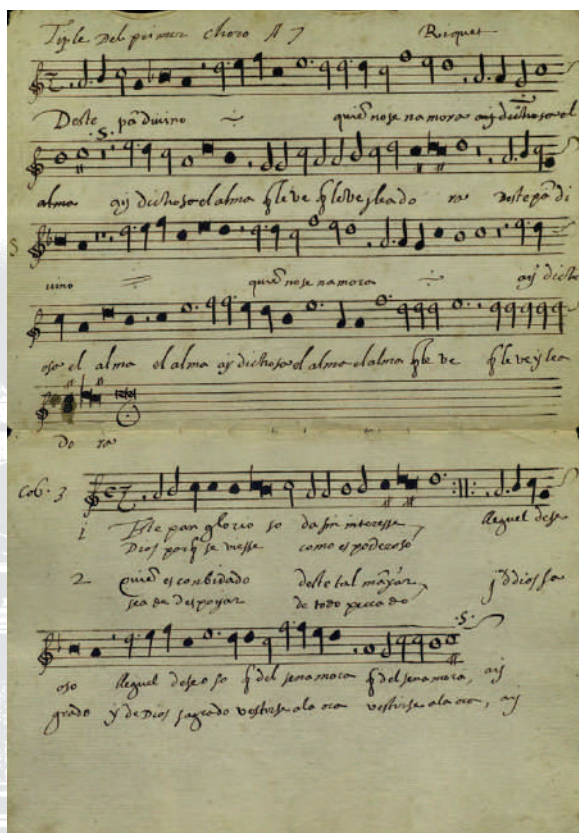 Tiple Del primer choro A 7 Riquet
Deste pā divino quiē no se namora aȳ dichoso el
alma aȳ dichoso el alma q̄ le ve q̄ le ve y le ado ra Deste pā di
vino quiē no se namora aȳ dich
oso el alma el alma aȳ dichoso el alma el alma q̄ le ve q̄ le ve y le a
do ra
Cob. 3
1 Este pan glorio so da sin interesse, Aquel dese
Dios porq̄ se viesse como es poderoso
2 quiē es conbidado deste tal mājar,
sea de despojar de todo peccado
oso Aquel deseoso q̄ del se namora q̄ del se namora, aȳ
grado y de Dios sagrado vestirse a la ora vestirse a la ora, aȳ